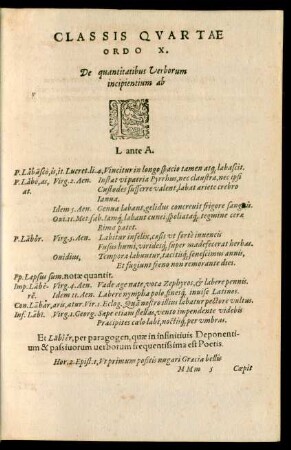 CLASSIS QVARTAE
ORDO X.
De quantitatibus Verborum
incipientium ab
L
L ante A.
P. Lăbāscŏ, is, it. Lucret. li. 4, Vincitur in longo spacio tamen atq; labascit.
P. Lăbŏ, as, Virg. 2. Aen. Instat vi patria Pyrrhus, nec claustra, nec ipsi
at. Custodes sufferre valent, labat ariete crebro
Ianua.
Idem 5. Aen. Genua labant, gelidus concreuit frigore sanguis.
Oui. 11. Met. fab. Iamq; labant cunei, spoliataq; tegmine ceræ
Rima patet.
P. Lābŏr. Virg. 5. Aen. Labitur infelix, cæsis vt forte iuuencis
Fusus humi, viridesq; super madefecerat herbas.
Ouidius, Tempora labuntur, tacitisq; senescimus annis,
Et fugiunt freno non remorante dies.
Pp. Lapsus sum. notæ quantit.
Imp. Lābĕ- Virg. 4. Aen. Vade age nate, voca Zephyros, & labere pennis.
rĕ. Idem 11. Aen. Labere nympha polo, fineisq; inuise Latinos.
Con. Lābār, aris, atur. Vir. 1. Eclog. Quàm nostro illius labatur pectore vultus.
Inf. Lābī. Virg. 1. Georg. Sæpe etiam stellas, vento impendente videbis
Præcipites cælo labi, noctisq; per vmbras.
Et Labier, per paragogen, quæ in infinitiuis Deponenti-
um & passiuorum verborum frequentissima est Poetis.
Hor. 2. Epist. 1, Vt primum positis nugari Græcia bellis
MMm 5 Cœpit